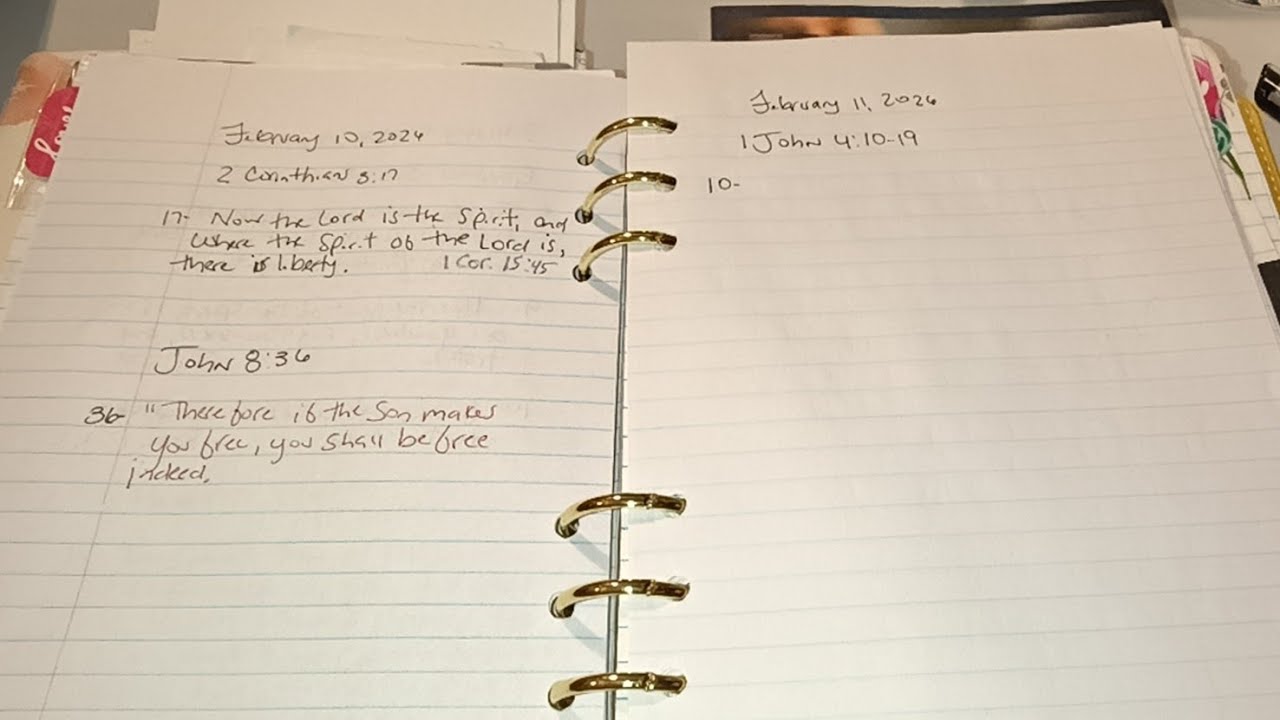 February 10, 2026
2 Corinthian 3:17
17- Now the Lord is the Spirit, and
where the Spirit of the Lord is,
there is liberty. 1 Cor. 15:45
John 8:36
36- "Therefore if the Son makes
you free, you shall be free
indeed.
February 11, 2026
1 John 4:10-19
10-